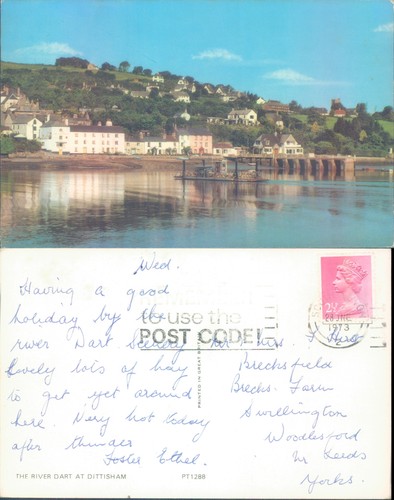 Wed.
Having a good
holiday by the
river Dart Scenery here
lovely lots of hay
to get yet around
here. Very hot today
after thunder
Foster Ethel.
use the
POST CODE!
28 JUN
1973
2½
Mrs. J Hird
Brecksfield
Brecks. Farm
Swillington
Woodlesford
Nr Leeds
Yorks.
PRINTED IN GREAT BRITAIN
THE RIVER DART AT DITTISHAM
PT1288